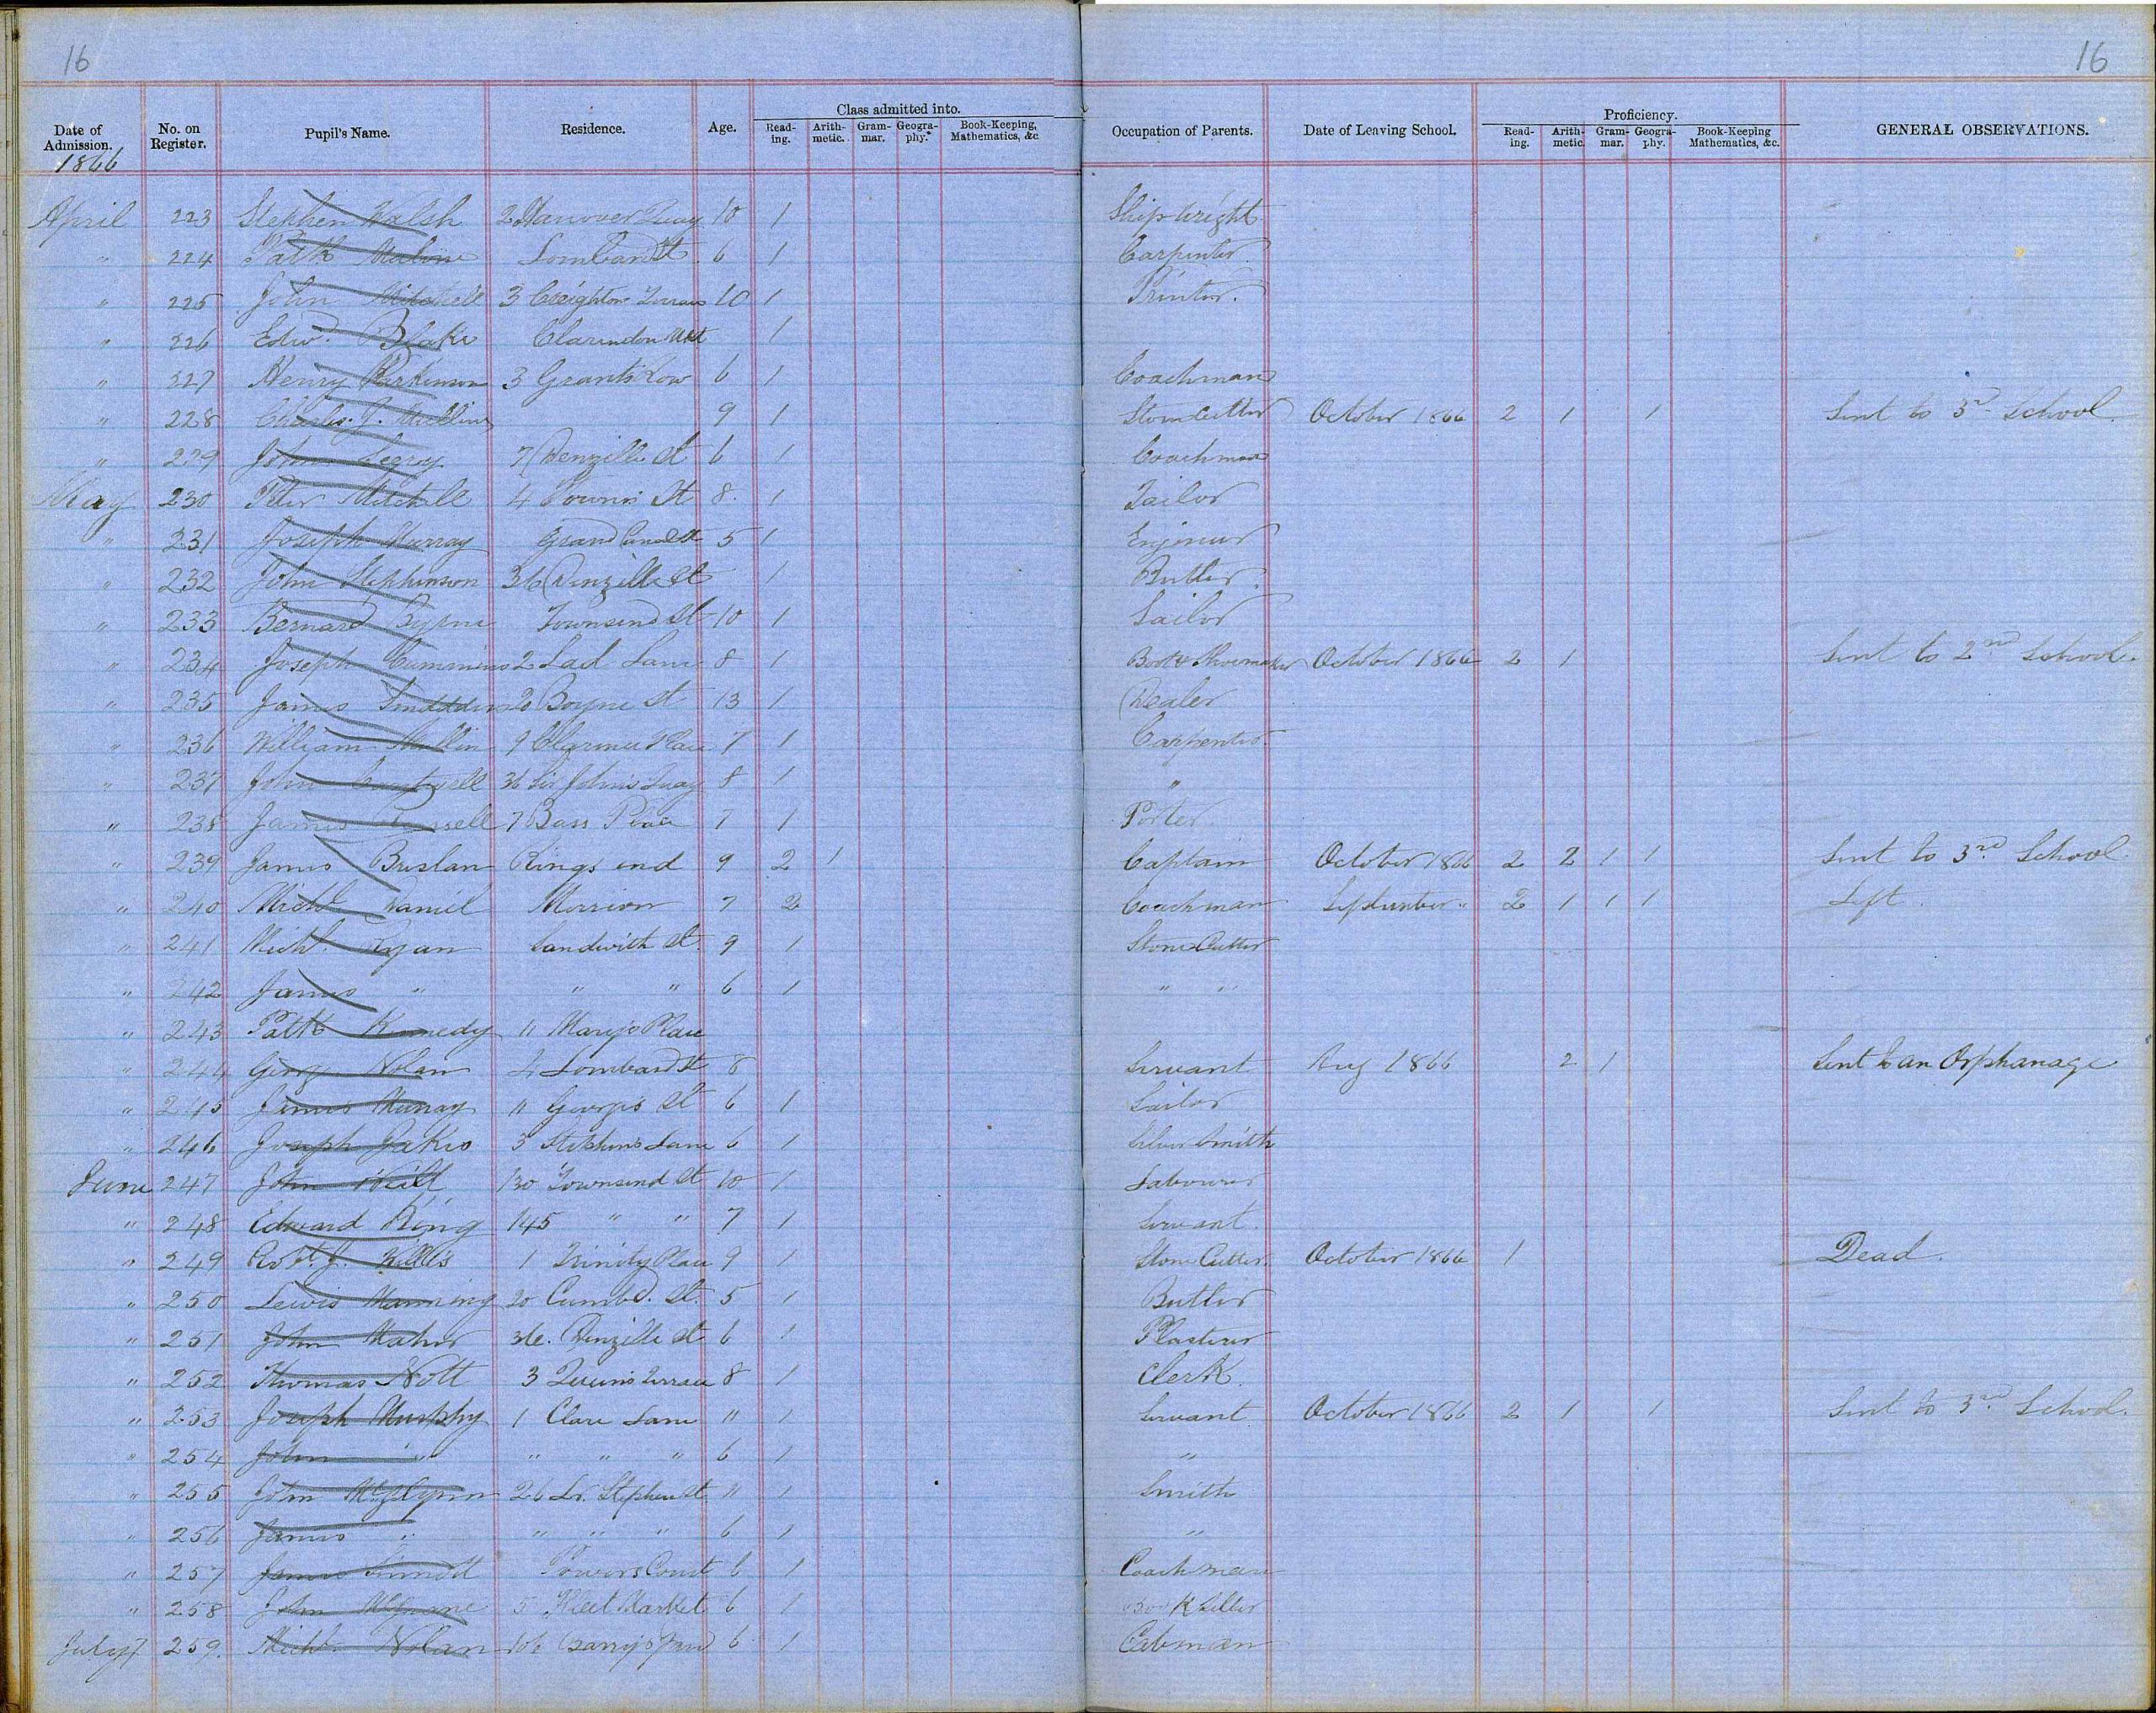 16
16
Date of Admission. No. on Register. Pupil's Name. Residence. Age. Class admitted into. Read-ing. Arith-metic. Gram-mar. Geogra-phy. Book-Keeping, Mathematics, &c Occupation of Parents. Date of Leaving School. Proficiency. Read-ing. Arith-metic. Gram-mar. Geogra-phy. Book-Keeping Mathematics, &c. GENERAL OBSERVATIONS.
1866
April 223 Stephen Walsh 2 Hanover Quay 10 1 Shipwright
" 224 Patk Malone Lombard St 6 1 Carpenter
" 225 John Mitchell 3 Creighton Terrace 10 1 Printer.
" 226 Edwd. Blake Clarendon Mkt 1
" 227 Henry Parkinson 3 Grants Row 6 1 Coachman
" 228 Charles J. Mullins 9 1 Stonecutter October 1866 2 1 1 Sent to 3rd School
" 229 John Segroy 7 Denzille St 6 1 Coachman
May 230 Peter Mitchell 4 St 8. 1 Tailor
" 231 Joseph Murray Grand Canal St 5 1 Engineer
" 232 John Stephenson 36 Denzille St 1 Butler.
" 233 Bernard Byrne Townsend St 10 1 Sailor
" 234 Joseph Cummins 2 Lad Lane 8 1 Boot & Shoemaker October 1866 2 1 Sent to 2nd School.
" 235 James 20 Boyne St 13 1 Dealer
" 236 William Mullin 9 Place 7 1 Carpenter.
" 237 John 36 Sir John's Quay 8 1 "
" 238 James Russell 7 Bass Place 7 1 Porter
" 239 James Breslan Rings end 9 2 1 Captain October 1866 2 2 1 1 Sent to 3rd School
" 240 Michl. Daniel Merrion 7 2 Coachman September " 2 1 1 1 Left.
" 241 Michl. Ryan Sandwith St. 9 1 Stone Cutter
" 242 James " " " 6 1 " "
" 243 Patk Kennedy 11 Mary's Place
" 244 Geo Nolan 4 Lombard St 8 Servant Aug 1866 2 1 Sent to an Orphanage
" 245 James Murray 11 George's St 6 1 Sailor
" 246 Joseph 3 Stephens Lane 6 1 Silver Smith
June 247 John Neill 130 Townsend St 10 1 Labourer
" 248 Edward King 145 " " 7 1 Servant.
" 249 Robt. J. Willis 1 Trinity Place 9 1 Stone Cutter. October 1866 1 Dead.
" 250 Lewis Manning 20 Cumbd. St. 5 1 Butler
" 251 John Maher 36. Denzille St 6 1 Plasterer
" 252 Thomas Nott 3 Queens Terrace 8 1 Clerk.
" 253 Joseph Murphy 1 Clare Lane 11 1 Servant October 1866 2 1 1 Sent to 3rd School.
" 254 John " " " " 6 1 "
" 255 John McGlynn 26 Lr. Stephen St 11 1 Smith
" 256 James " " " " 6 1 "
" 257 James Powers Court 6 1 Coachman
" 258 John 5 Fleet Market 6 1 Book Seller
July 259. Michl. Nolan Barry's Yard 6 1 Cabman